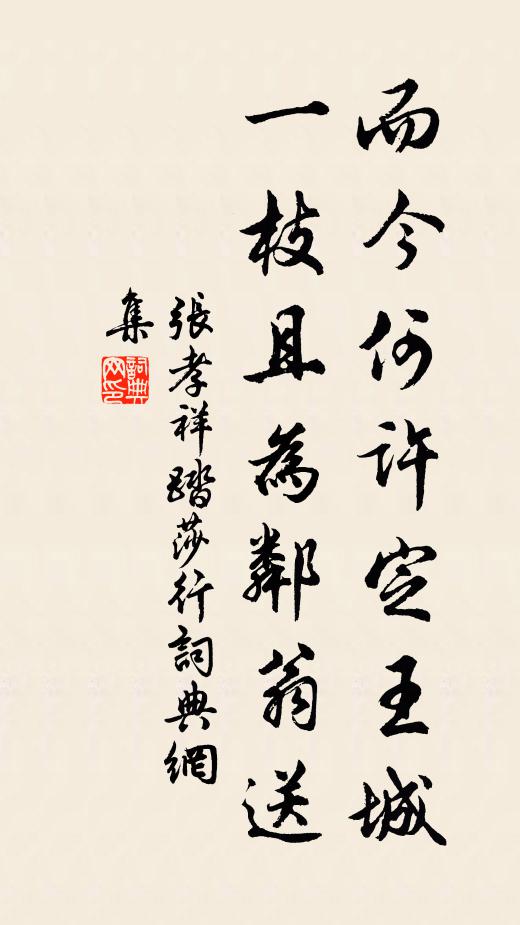 而今何許定王城
一枝且為鄰翁送
張孝祥踏莎行詞典網
集
詞典
网印